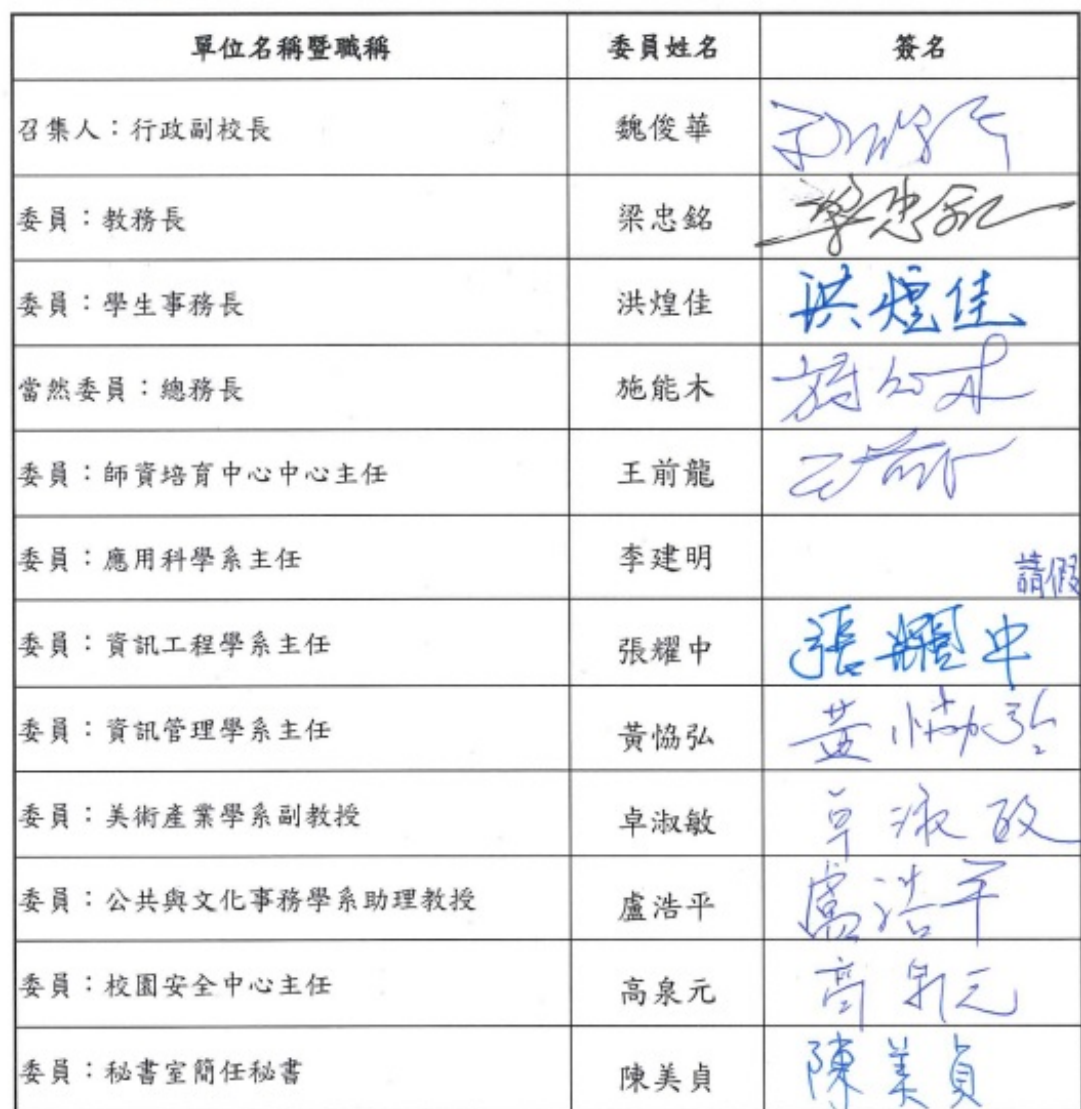 單位名稱暨職稱 委員姓名 簽名
召集人：行政副校長 魏俊華
委員：教務長 梁忠銘 梁忠銘
委員：學生事務長 洪煌佳 洪煌佳
當然委員：總務長 施能木 施能木
委員：師資培育中心中心主任 王前龍
委員：應用科學系主任 李建明 請假
委員：資訊工程學系主任 張耀中 張耀中
委員：資訊管理學系主任 黃恊弘 黃恊弘
委員：美術產業學系副教授 卓淑敏 卓淑敏
委員：公共與文化事務學系助理教授 盧浩平 盧浩平
委員：校園安全中心主任 高泉元 高泉元
委員：秘書室簡任秘書 陳美貞 陳美貞